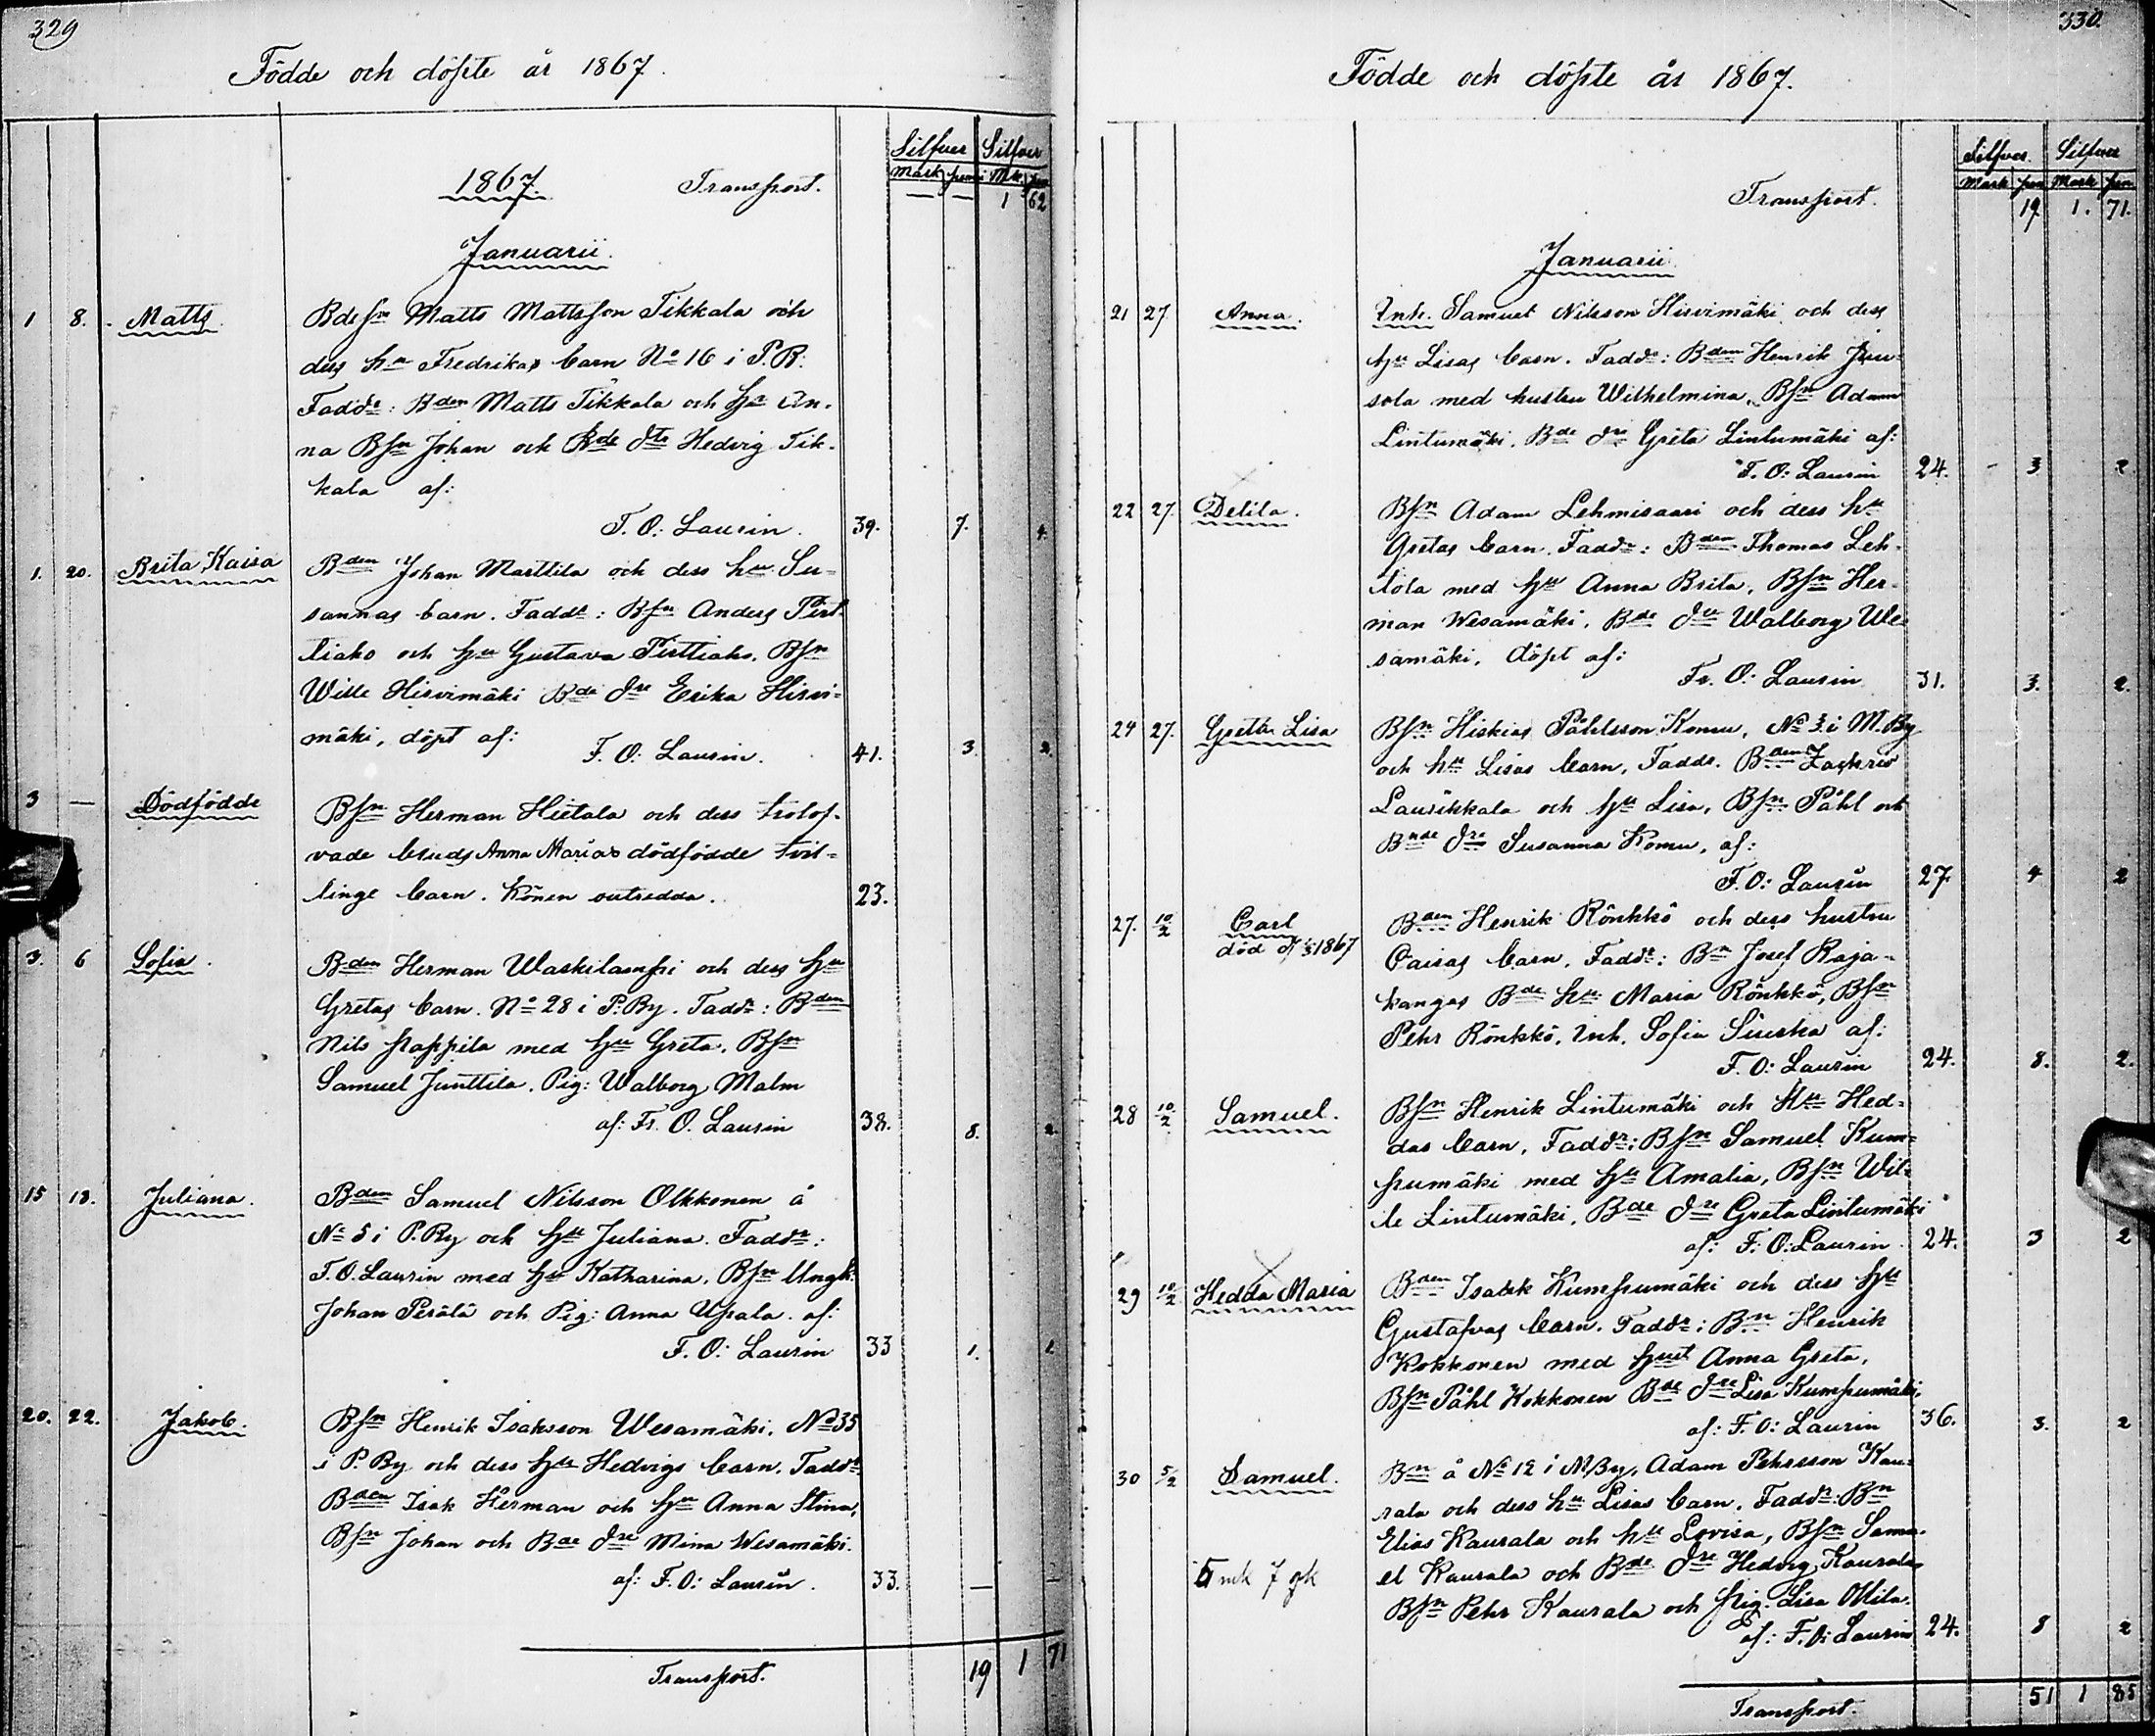 329
Födde och döpte år 1867.
Silfver Silfver
Mark penni Mk. pen
1867. Transport. — — 1 62
Januarii.
1 8. Matts Bdesn Matts Mattsson Tikkala och
dess hu Fredrikas barn No 16 i P.B.
Faddr: Bden Matts Tikkala och hu An-
na Bsn Johan och Bde dtr Hedvig Tik-
kala af:
F. O: Laurin. 39. 7. 4.
1. 20. Brita Kaisa Bden Johan Marttila och dess hu Su-
sannas barn. Faddr: Bsn Anders Pirt-
tiaho och hu Gustava Pirttiaho. Bsn
Wille Hirvimäki Bde dtr Erika Hirvi-
mäki, döpt af:
F. O: Laurin. 41. 3. 2.
3 — Dödfödde Bsn Herman Hietala och dess trolof-
vade bruds Anna Marias dödfödde tvil-
linge barn. Könen outredda. 23.
3. 6 Sofia. Bden Herman Waskilampi och dess hu
Gretas barn. No 28 i P. By. Faddr: Bden
Nils Pappila med hu Greta. Bsn
Samuel Junttila. Pig: Walborg Malm
af: Fr. O. Laurin 38. 8. 2.
15 18. Juliana. Bden Samuel Nilsson Olkkonen å
No 5 i P. By och hu Juliana. Faddr:
F. O. Laurin med hu Katharina. Bsn Ungk.
Johan Perälä och Pig: Anna Upala. af:
F. O: Laurin 33 1. 1.
20. 22. Jakob. Bsn Henrik Isaksson Wesamäki. No 35
i P. By och dess hu Hedvigs barn. Faddr
Bden Isak Herman och hu Anna Stina,
Bsn Johan och Bde dtr Mina Wesamäki.
af: F. O: Laurin. 33. — —
Transport. 19 1 71
330.
Födde och döpte år 1867.
Silfver. Silfver
Mark pen Mark pen
Transport. 19 1. 71.
Januarii
21 27 Anna. Inh. Samuel Nilsson Hirvimäki och dess
hu Lisas barn. Faddr: Bden Henrik
sola med hustru Wilhelmina, Bsn Adam
Lintumäki. Bde dtr Greta Lintumäki af:
F. O: Laurin 24. - 3 2
22 27. Delila. Bsn Adam Lehmisaari och dess hu
Gretas barn. Faddr: Bden Thomas Leh-
tola med hu Anna Brita, Bsn Her-
man Wesamäki. Bde dtr Walborg We-
samäki, döpt af:
Fr. O. Laurin 31. 3. 2.
24 27. Greta Lisa Bsn Hiskias Påhlsson Komu, No 3 i M. By
och hu Lisas barn, Faddr. Bden Zachris
Laurikkala och hu Lisa, Bsn Påhl och
Bnde dtr Susanna Komu, af:
F. O: Laurin 27 4 2
27. 10/2 Carl Bden Henrik Rönkkö och dess hustru
död 1867 Caisas barn, Faddr: Bn Josef Raja-
kangas Bde hu Maria Rönkkö, Bsn
Pehr Rönkkö, Inh. Sofia Siurka af:
F. O: Laurin 24. 8. 2.
28 10/2 Samuel. Bsn Henrik Lintumäki och hu Hed-
das barn, Faddr: Bsn Samuel Kum-
pumäki med hu Amalia, Bsn Wil-
le Lintumäki, Bde dtr Greta Lintumäki
af: F. O: Laurin. 24. 3 2
29 10/2 Hedda Maria Bden Isak Kumpumäki och dess hu
Gustafvas barn. Faddr: Bn Henrik
Kokkonen med hust Anna Greta,
Bsn Påhl Kokkonen Bde dtr Lisa Kumpumäki,
af: F. O: Laurin 36. 3. 2
30 5/2 Samuel. Bn å No 12 i M By, Adam Pehrsson Kau-
rala och dess hu Lisas barn. Faddr: Bn
Elias Kaurala och hu Lovisa, Bsn Samu-
el Kaurala och Bde dtr Hedvig Kaurala
5 mk 7 gk Bsn Pehr Kaurala och pig. Lisa Ollila.
af: F. O: Laurin 24. 8 2
Transport. 51 1 85